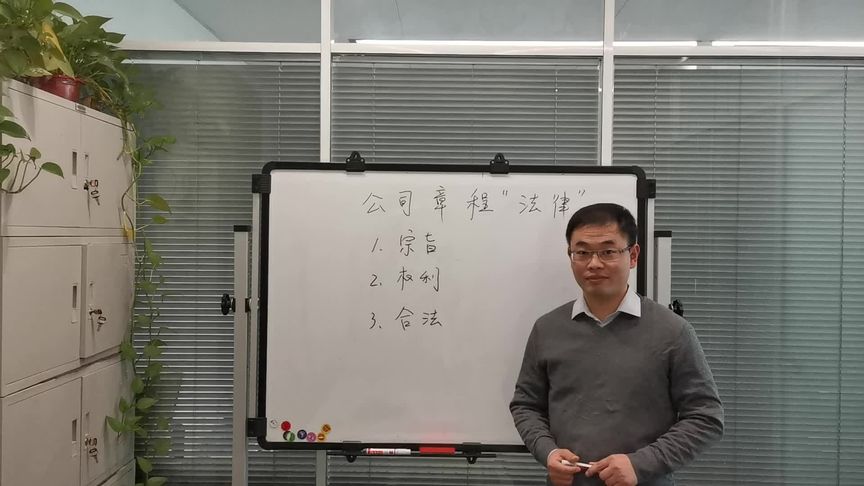 公司章程“法律”
1. 宗旨
2. 权利
3、合法